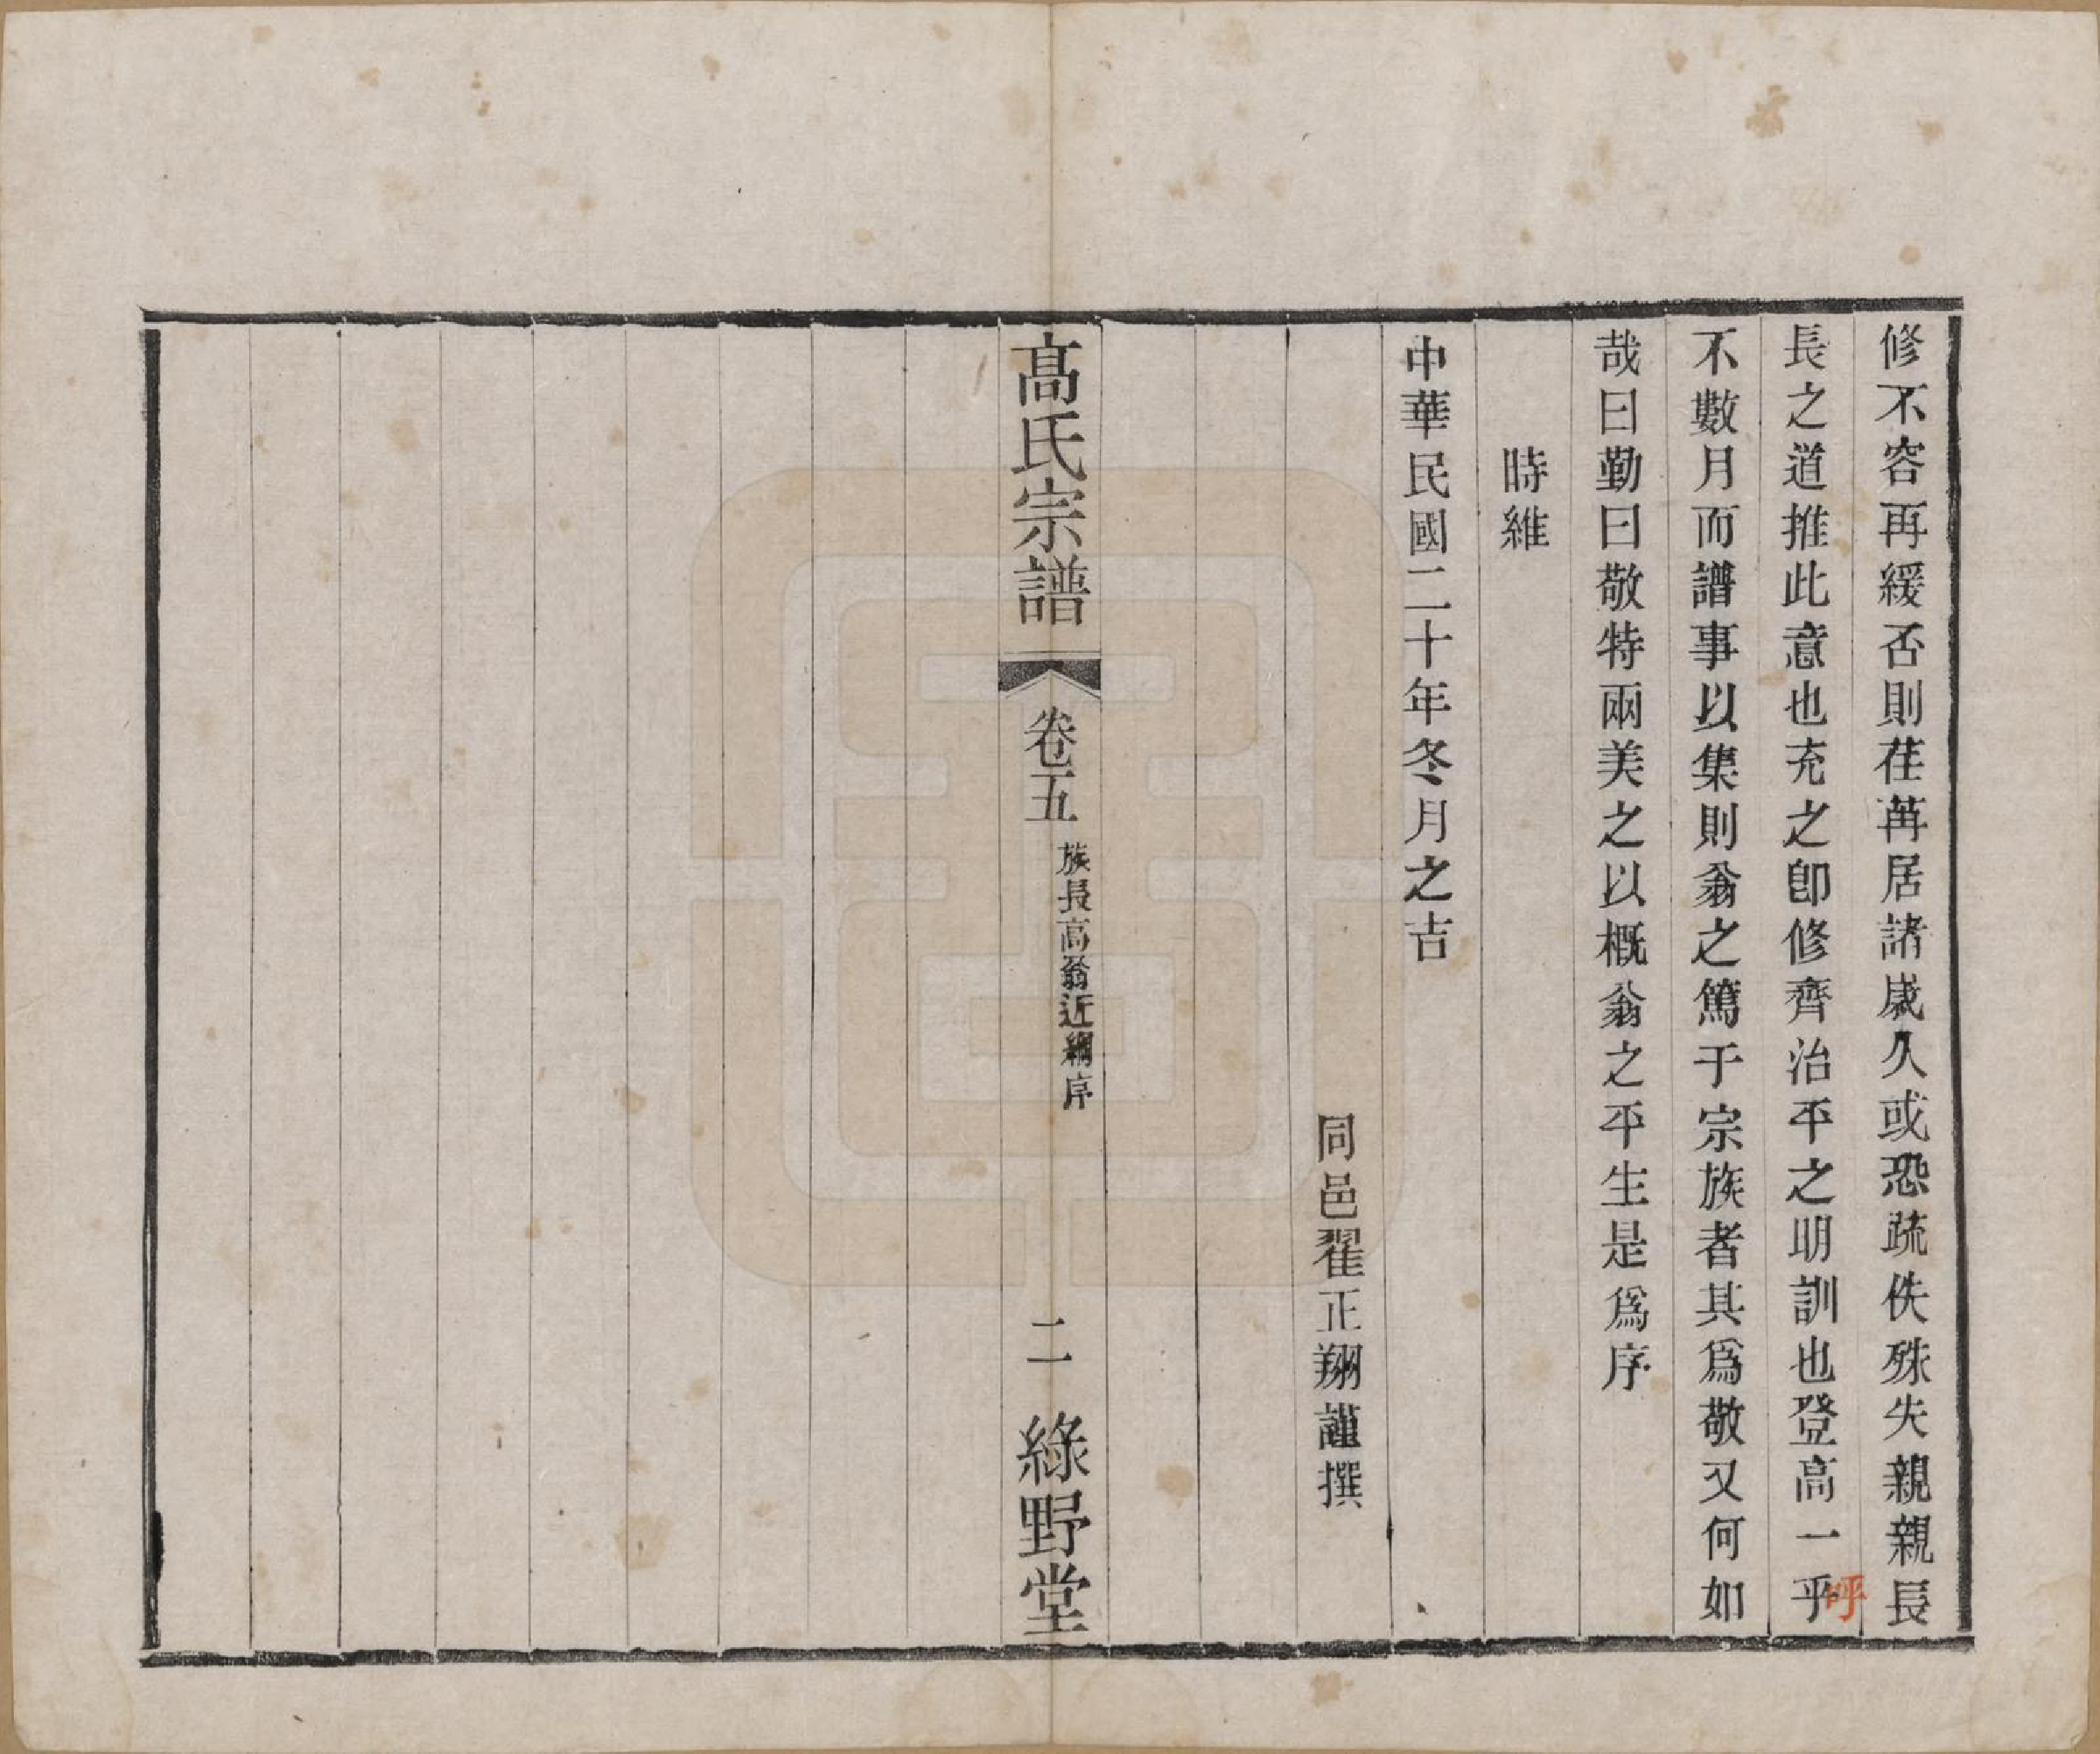 修不容再緩否則荏苒居諸歲久或恐疏佚殊失親親長
長之道推此意也充之卽修齊治平之明訓也登高一乎
呼
不數月而譜事以集則翁之篤于宗族者其爲敬又何如
哉曰勤曰敬特兩美之以概翁之平生是爲序
時維
中華民國二十年冬月之吉
同邑翟正翔謹撰
髙氏宗譜
卷五
族長高翁近綱序
二
綠野堂